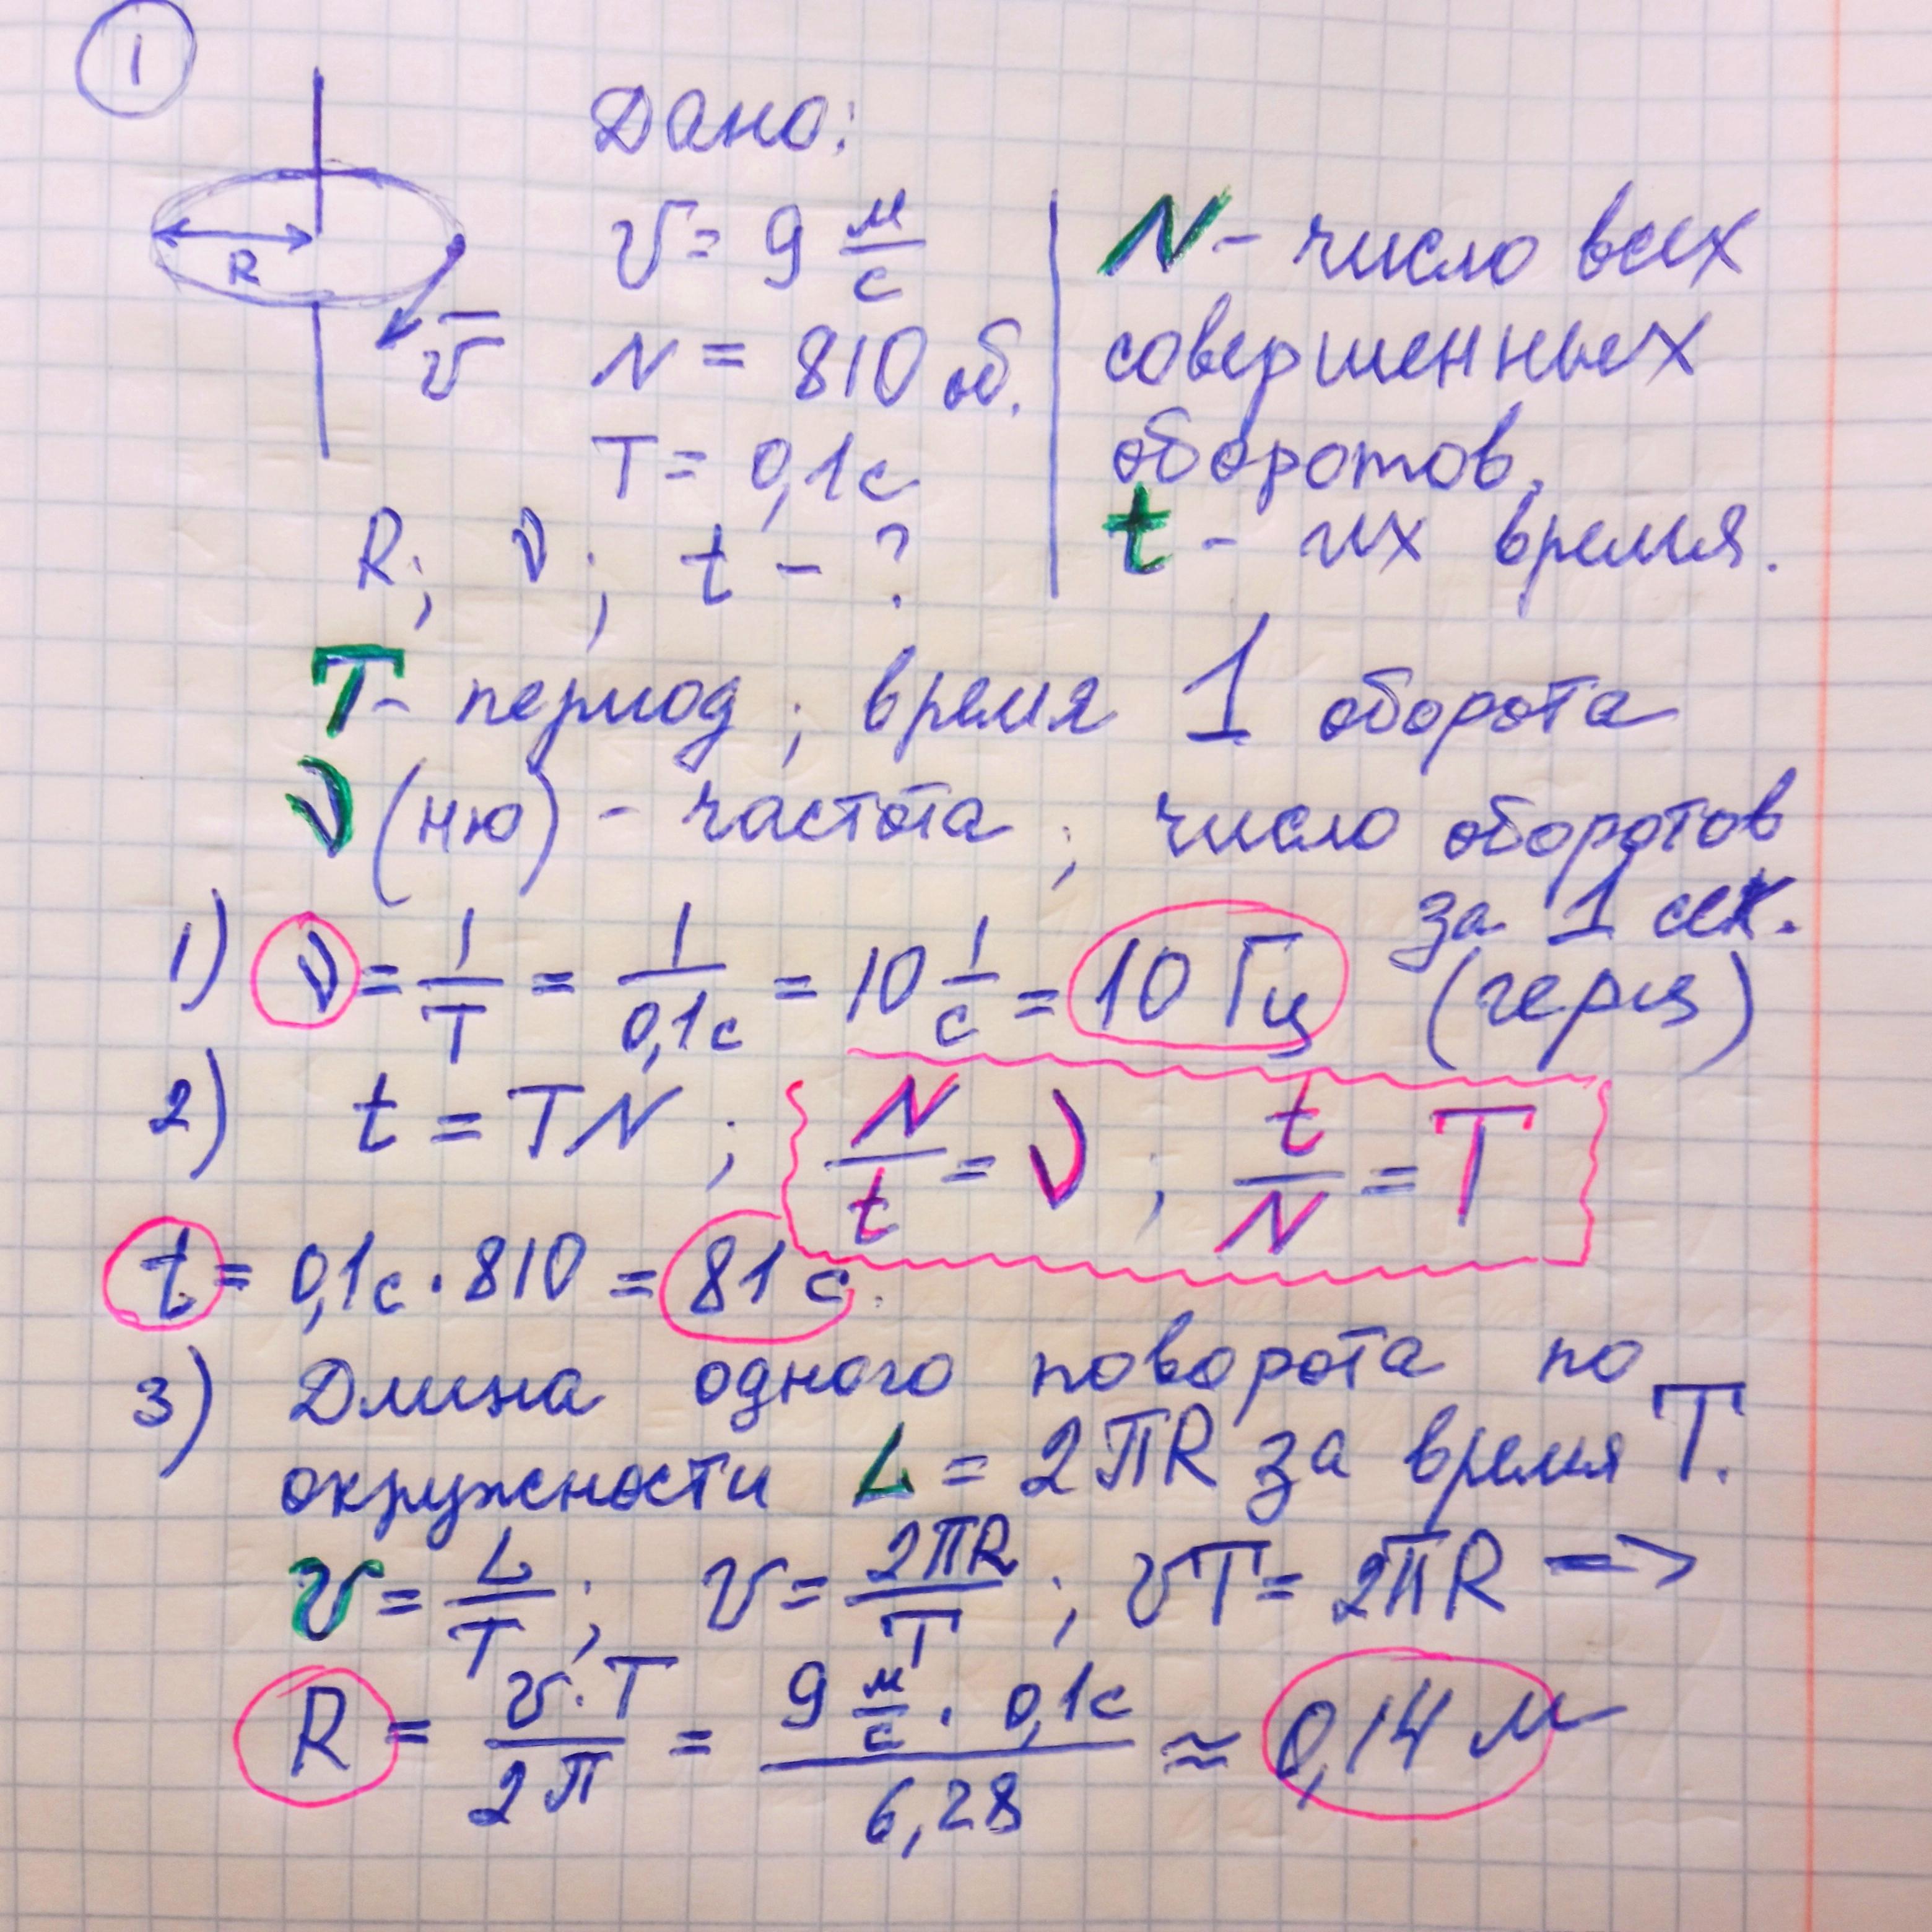 1
Дано:
R
v̄
v = 9 м/с
N = 810 об.
T = 0,1с
R; ν; t - ?
N - число всех
совершенных
оборотов,
t - их время.
T - период; время 1 оборота
ν (ню) - частота; число оборотов
за 1 сек.
1) ν = 1/T = 1/0,1с = 10 1/с = 10 Гц (герц)
2) t = TN; N/t = ν; t/N = T
t = 0,1с · 810 = 81 с.
3) Длина одного поворота по
окружности L = 2πR за время T.
v = L/T; v = 2πR/T; vT = 2πR =>
R = v·T/2π = 9 м/с · 0,1с/6,28 ≈ 0,14 м